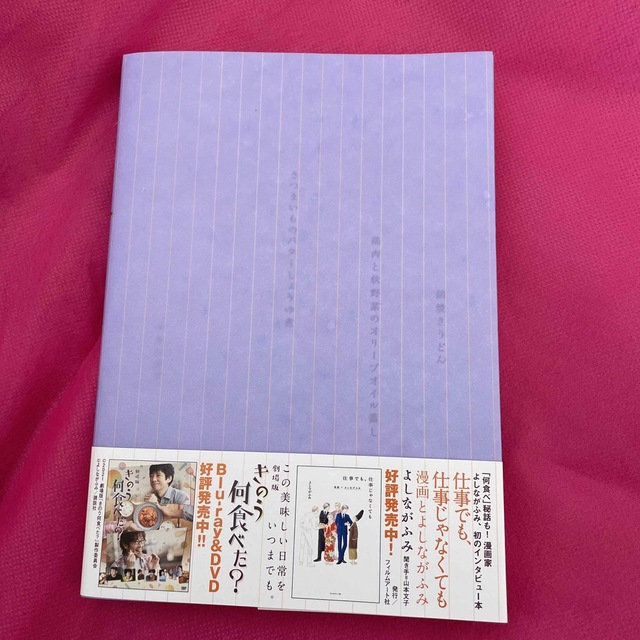 鍋焼きうどん
鶏肉と秋野菜のオリーブオイル蒸し
さつまいものバターしょうゆ煮
「何食べ」秘話も!漫画家
よしながふみ、初のインタビュー本
仕事でも、
仕事じゃなくても
漫画とよしながふみ
よしながふみ 聞き手=山本文子
好評発売中! 発行/フィルムアート社
仕事でも、
仕事じゃなくても
漫画とよしながふみ
よしながふみ
この美味しい日常を
いつまでも。
劇場版
きのう何食べた?
Blu-ray&DVD
好評発売中!!
劇場版
きのう
何食べた?
DVD
©2021 劇場版「きのう何食べた?」製作委員会
©よしながふみ/講談社